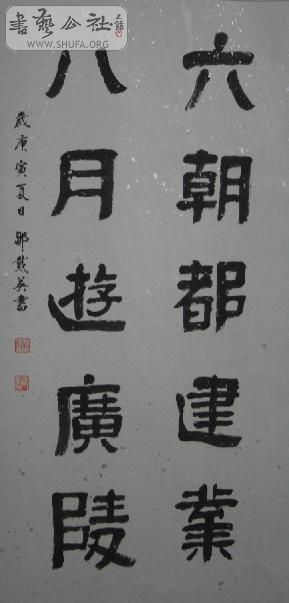 六朝都建業
八月遊廣陵
歲庚寅夏日鄒戴英書
書藝公社
WWW.SHUFA.ORG